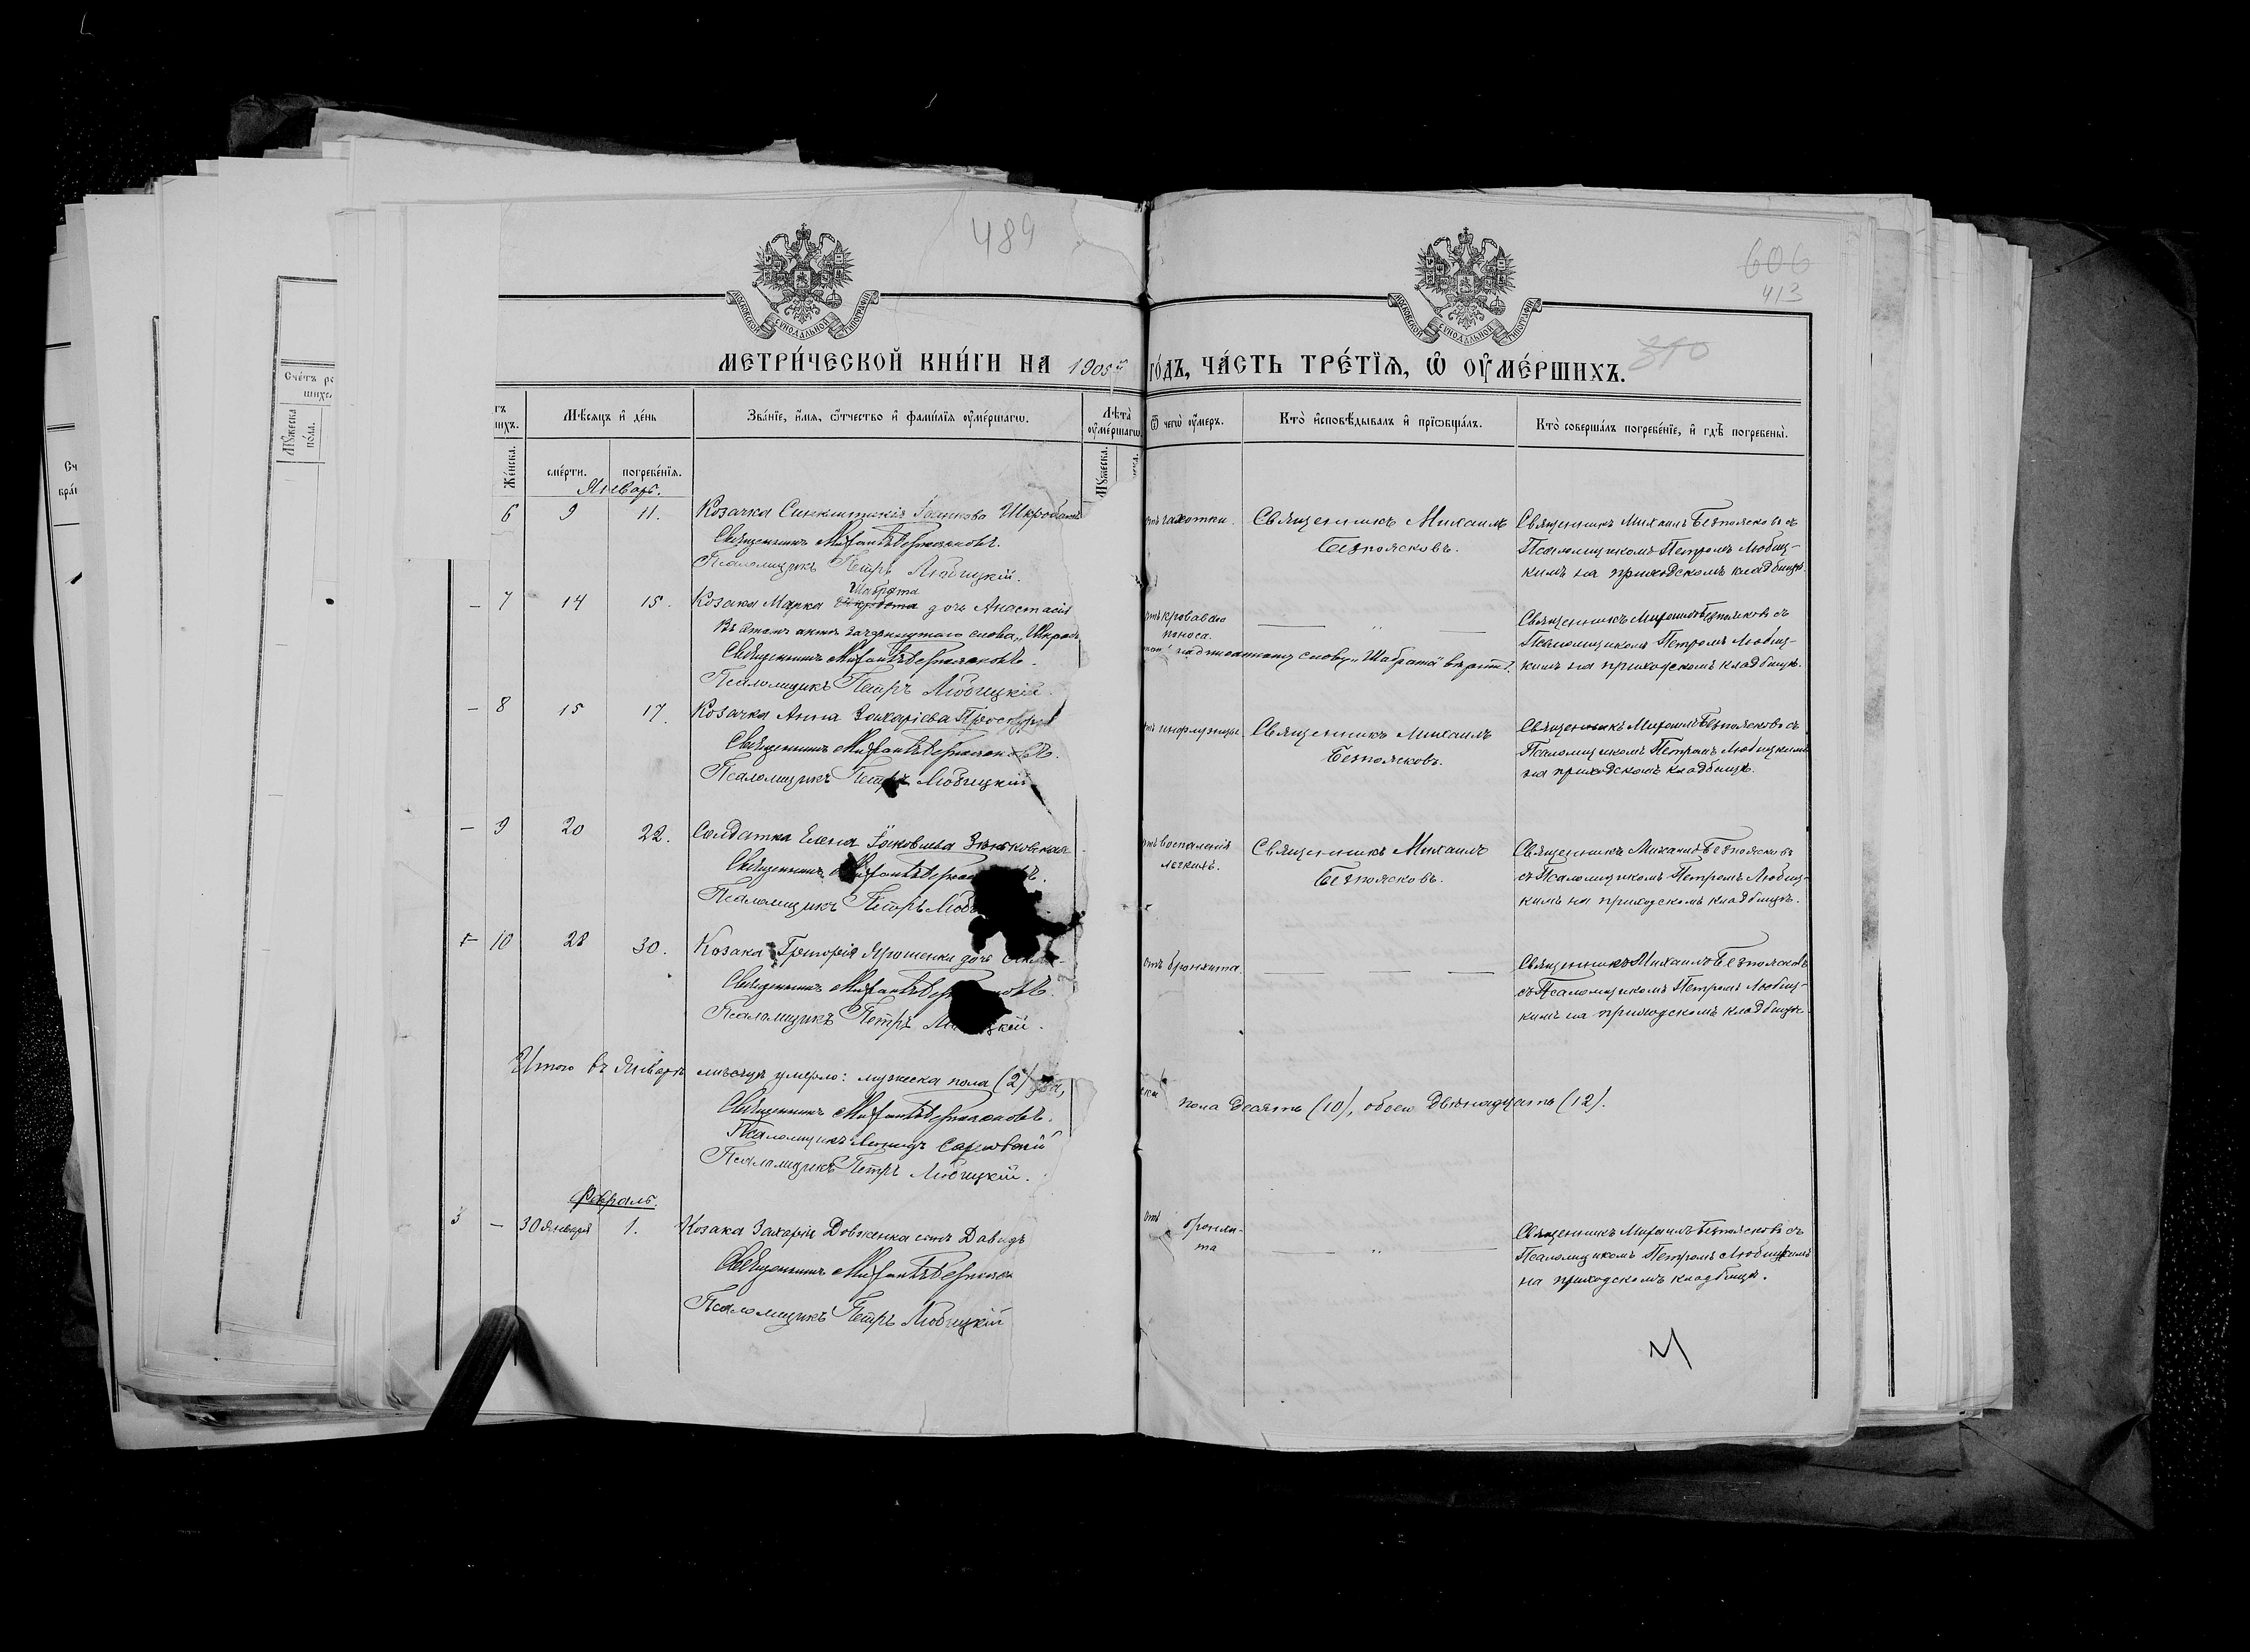 489
606
413
310
МОСКОВСКОЙ СУНОДАЛЬНОЙ ТИПОГРАФІИ
МОСКОВСКОЙ СУНОДАЛЬНОЙ ТИПОГРАФІИ
МЕТРИ́ЧЕСКОЙ КНИ́ГИ НА 1905й
ГО́ДЪ, ЧА́СТЬ ТРЕ́ТІѦ, Ѽ ОУ҆МЕ́РШИХЪ.
Мѣсяцъ и҆ де́нь
Зва́нїе, и҆́мя, ѻ҆́тчество и҆ фами́лїя оу҆ме́ршагѡ.
Лѣта̀ оу҆ме́ршагѡ.
Ѿ чегѡ̀ оу҆́меръ.
Кто̀ и҆сповѣ́дывалъ и҆ прїѡбща́лъ.
Кто̀ соверша́лъ погребе́нїе, и҆ гдѣ̀ погребены̀.
Же́нска.
сме́рти.
погребе́нїя.
Му́жеска.
Счётъ
Му́жеска по́ла.
Январь.
6 9 11. Козачка Синклитикія Іоаннова
Священникъ Михаилъ Безпоясковъ.
Псаломщикъ Петръ Любицкій.
отъ чахотки.
Священникъ Михаилъ
Безпоясковъ.
Священникъ Михаилъ Безпоясковъ съ
Псаломщикомъ Петромъ Любиц-
кимъ на приходскомъ кладбищѣ.
Шабрата
— 7 14 15. Козака Марка дочь Анастасія
Въ этомъ актѣ зачеркнутаго слова „Шкроб
Священникъ Михаилъ Безпоясковъ.
Псаломщикъ Петръ Любицкій.
отъ кроваваго
поноса.
надписанному слову „Шабрата" вѣрить.
Священникъ Михаилъ Безпоясковъ съ
Псаломщикомъ Петромъ Любиц-
кимъ на приходскомъ кладбищѣ.
— 8 15 17. Козачка Анна Захаріева
Священникъ Михаилъ Безпоясковъ.
Псаломщикъ Петръ Любицкій
отъ инфлуэнцы
Священникъ Михаилъ
Безпоясковъ.
Священникъ Михаилъ Безпоясковъ съ
Псаломщикомъ Петромъ Любицкимъ
на приходскомъ кладбищѣ.
— 9 20 22. Солдатка Елена Іаковлева Зеньковская
Священникъ
Псаломщикъ Петръ
отъ воспаленія
легкихъ.
Священникъ Михаилъ
Безпоясковъ.
Священникъ Михаилъ Безпоясковъ
съ Псаломщикомъ Петромъ Любиц-
кимъ на приходскомъ кладбищѣ.
— 10 28 30. Козака Григорія Ярошенки дочь
Священникъ Михаилъ
Псаломщикъ Петръ
отъ бронхита.
Священникъ Михаилъ Безпоясковъ
съ Псаломщикомъ Петромъ Любиц-
кимъ на приходскомъ кладбищѣ.
Итого въ Январѣ мѣсяцѣ умерло: мужеска пола (2) два,
пола десять (10), обоего двѣнадцать (12).
Священникъ Михаилъ Безпоясковъ.
Псаломщикъ Леонидъ
Псаломщикъ Петръ Любицкій.
Февраль.
3 — 30 Января 1. Козака Захаріи Довженка сынъ Давидъ
Священникъ Михаилъ
Псаломщикъ Петръ Любицкій
отъ бронхи-
та
Священникъ Михаилъ Безпоясковъ съ
Псаломщикомъ Петромъ Любицкимъ
на приходскомъ кладбищѣ.